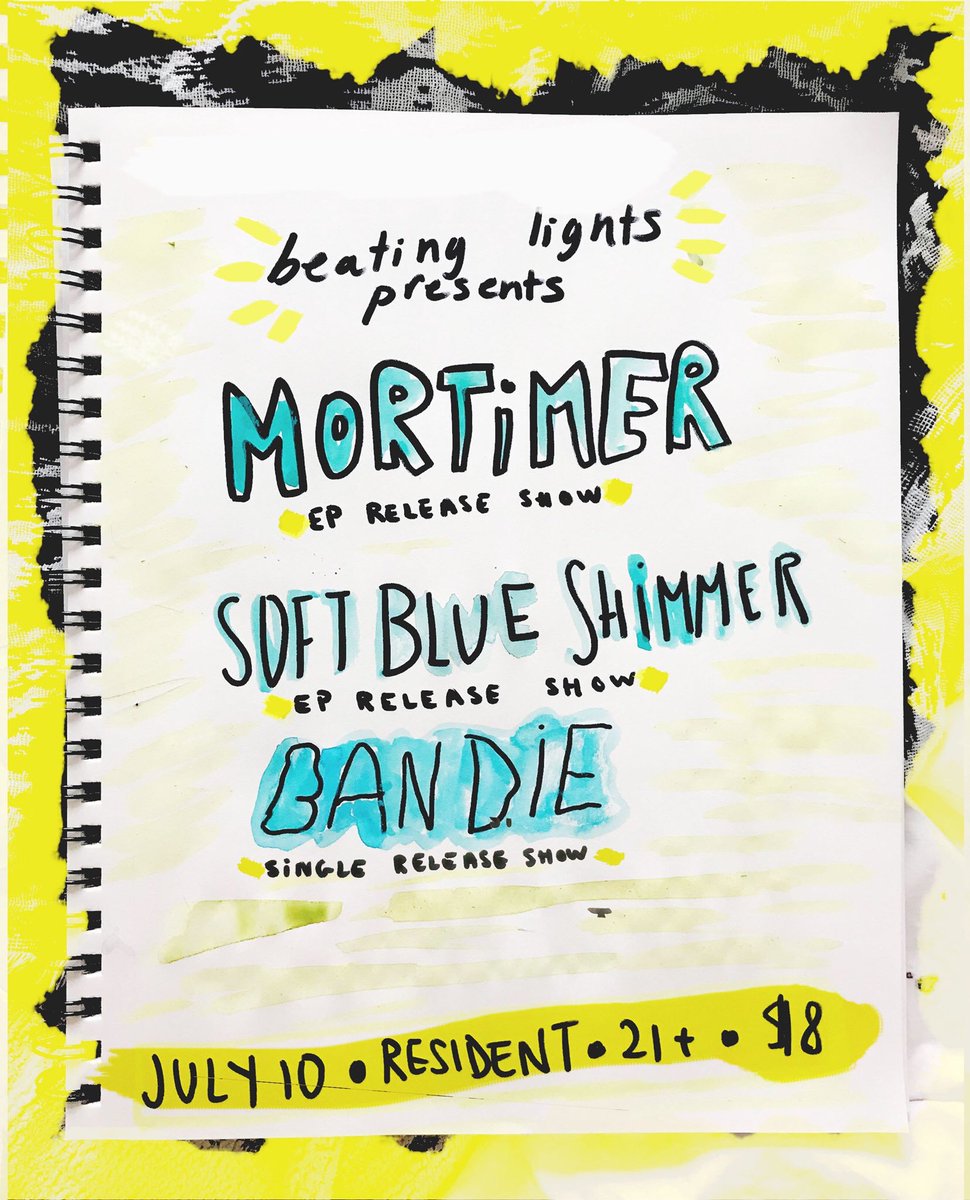 beating lights
presents
MORTiMER
EP RELEASE SHOW
SOFT BLUE SHiMMER
EP RELEASE SHOW
BANDiE
SiNGLE RELEASE SHOW
JULY 10 • RESIDENT • 21+ • $8